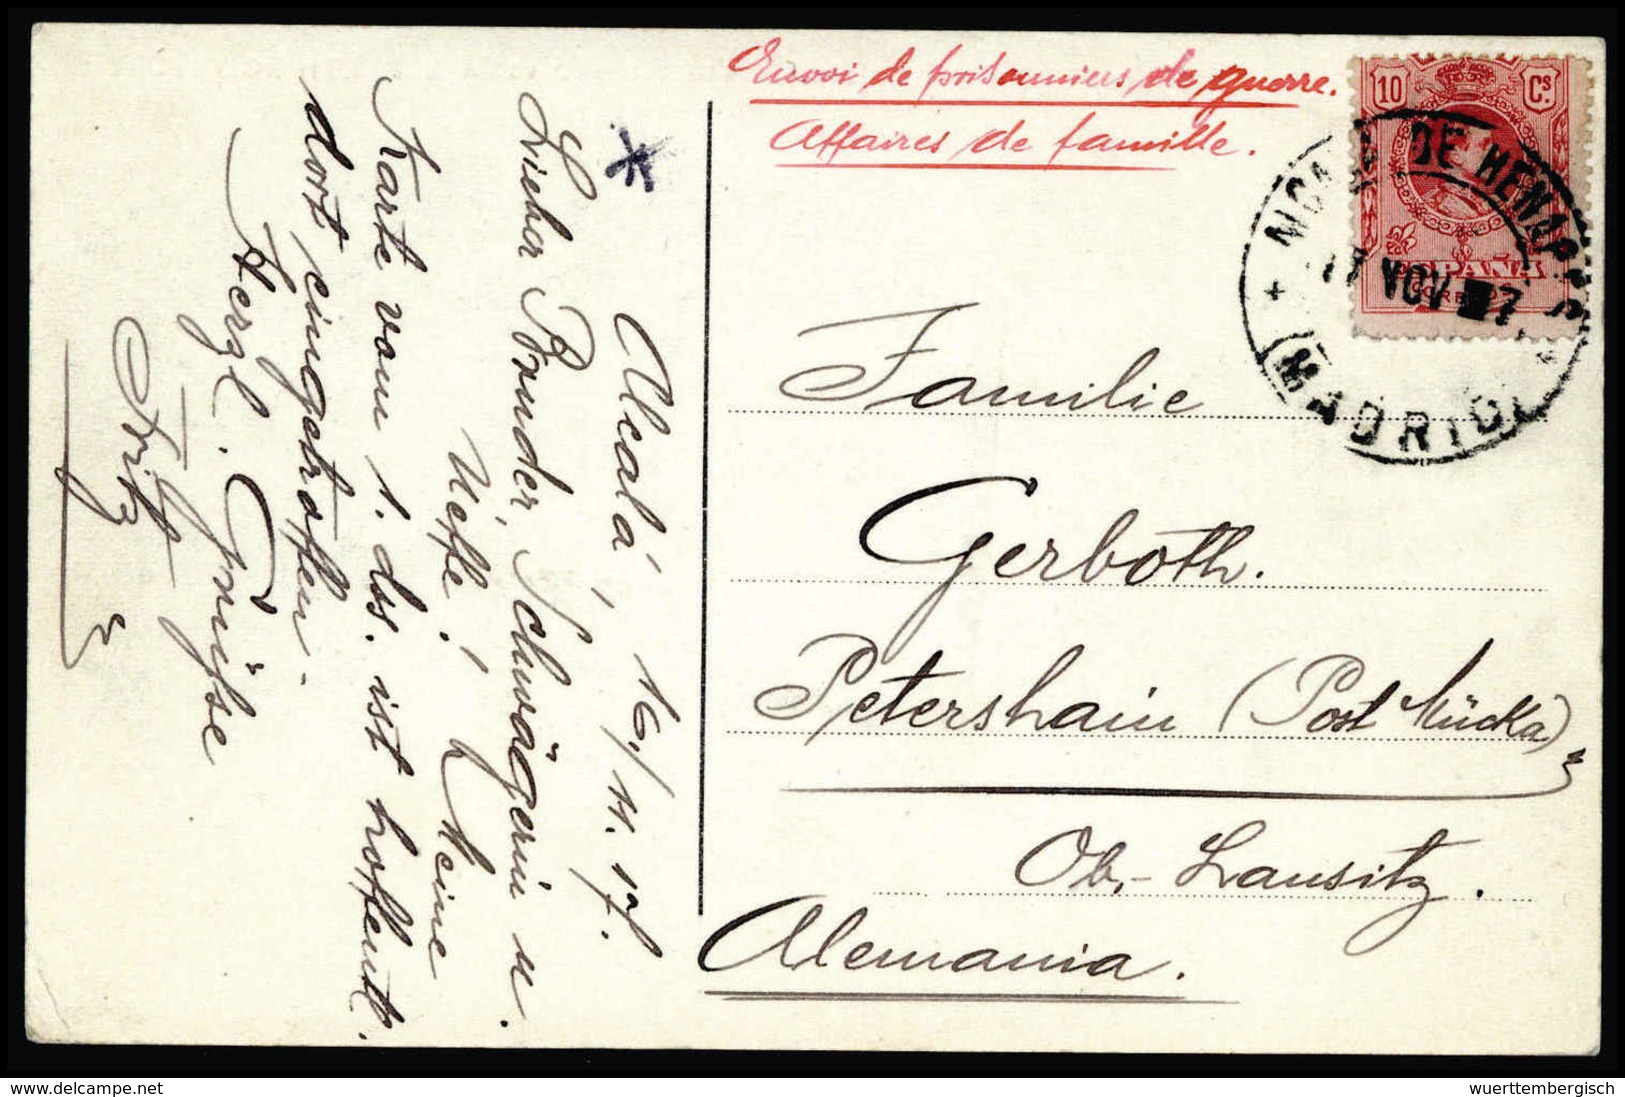 Envoi de prisonniers de guerre.
Affaires de famille.
10 Cs.
ESPAÑA
CORREOS
ALCALA DE HENARES
17 NOV 17
MADRID
Familie
Gerboth.
Petershain (Post Mücka)
Ob.-Lausitz.
Alemania.
Alcalá, 16./11.17.
Lieber Bruder, Schwägerin u.
Neffe! Meine
Karte vom 1. ds. ist hoffentl.
dort eingetroffen.
Herzl. Grüsse
Fritz
wuerttembergisch